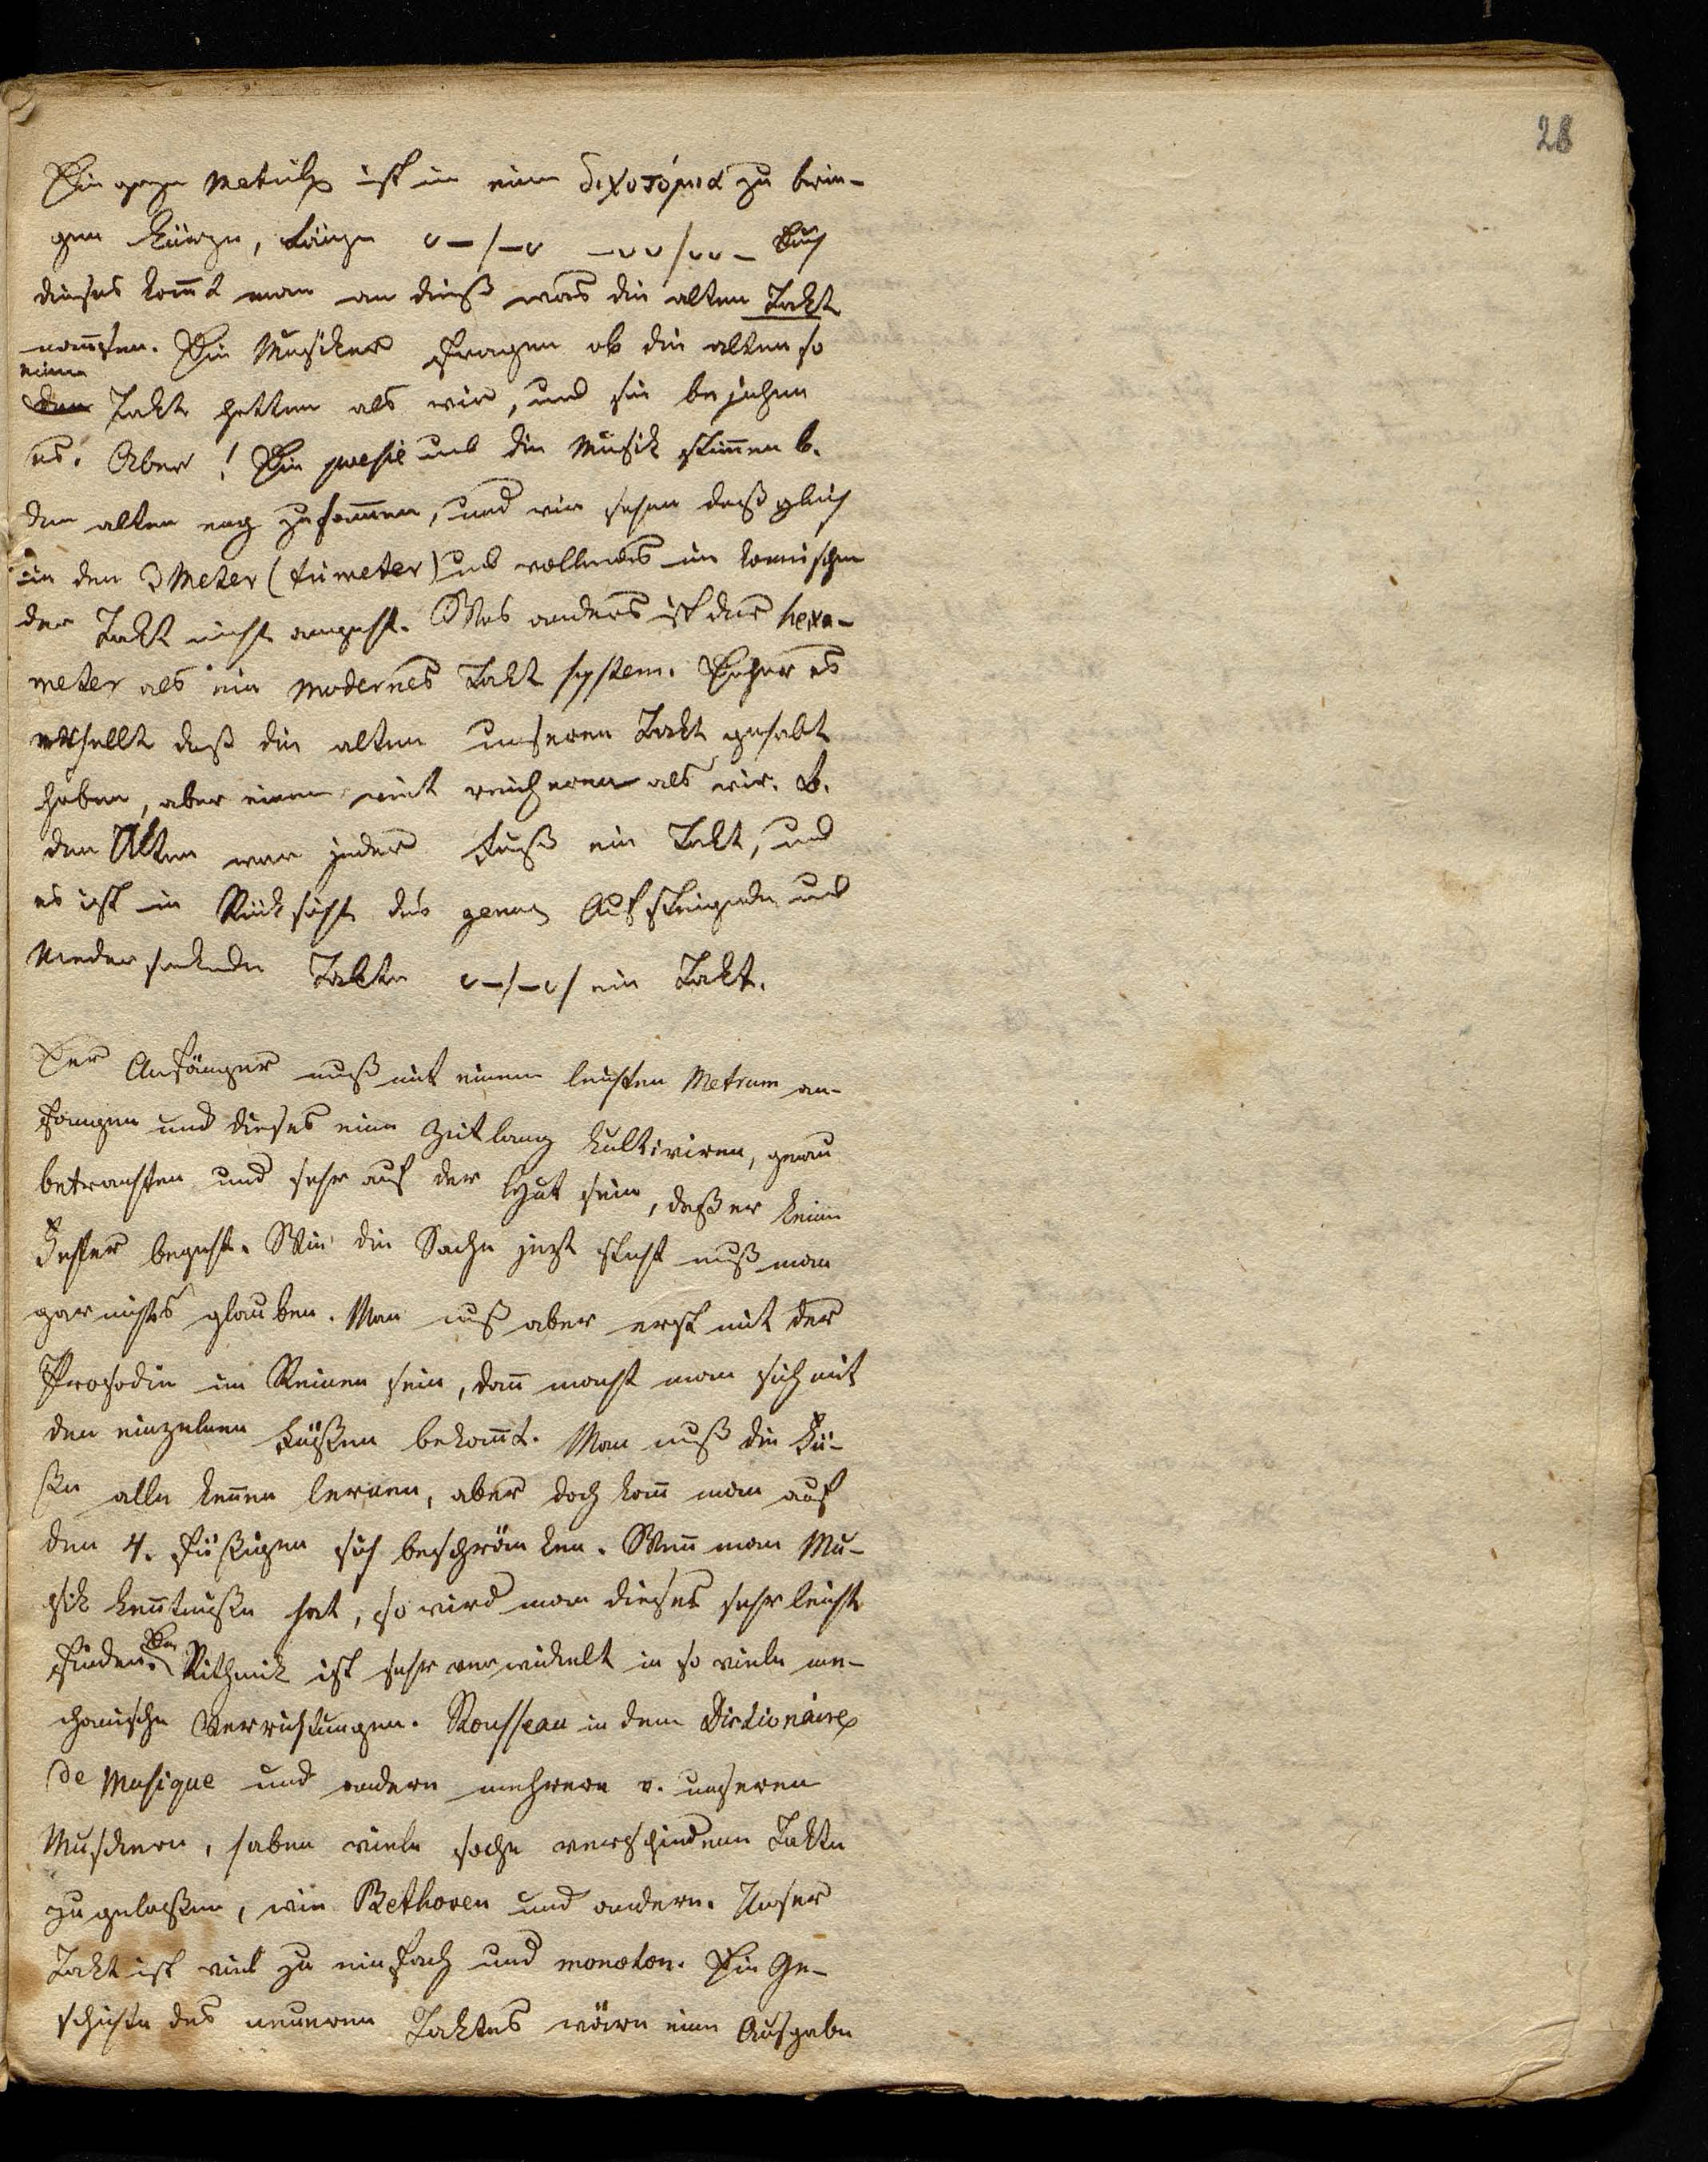 28
Die ganze Metrik ist in eine διχοτόμια zu brin-
gen Kürzen, Länge ᴗ–/–ᴗ –ᴗᴗ/ᴗᴗ– Durch
dieses komt man an dieß was die alten Takt
nannten. Die Musiker fragen ob die alten so
einen
den Takt hetten als wir, und sie bejahen
es. Aber! Die poesie und die Musik stimen b.
den alten eng zusamen, und wir sehen daß gleich
in den 3 Meter (trimeter) und vollends im komischen
der Takt nicht angeht. Was anders ist der hexa-
meter als ein modernes Takt system. Daher es
erhellt daß die alten unseren Takt gehabt
haben, aber einen weit reicheren als wir. B.
den Alten war jeder Fuß ein Takt, und
es ist in Rüksicht des genus Aufsteigende und
Niedersinkende Takte ᴗ–/–ᴗ/ ein Takt.
Der Anfänger muß mit einem leichten Metrum an-
fangen und dieses eine Zeitlang kultiviren, genau
betrachten und sehr auf der Hut sein, daß er keine
Fehler begeht. Wie die Sache jezt steht muß man
gar nichts glauben. Man muß aber erst mit der
Prosodie im Reinen sein, dan macht man sich mit
den einzelnen Füßen bekant. Man muß die Fü-
ße alle kenen lernen, aber doch kan man auf
den 4. füßigen sich beschränken. Wen man Mu-
sik kentniße hat, so wird man dieses sehr leicht
finden. Die Rithmik ist sehr verwickelt in so viele me-
chanische Verrichtungen. Rousseau in dem Dictionaire
de Musique und andern mehrern v. unseren
Musikern, haben viele solche verschiedene Takte
zugelaßen, wie Bethoven und andern. Unser
Takt ist viel zu einfach und monoton. Die Ge-
schichte des neueren Taktes wäre eine Aufgabe